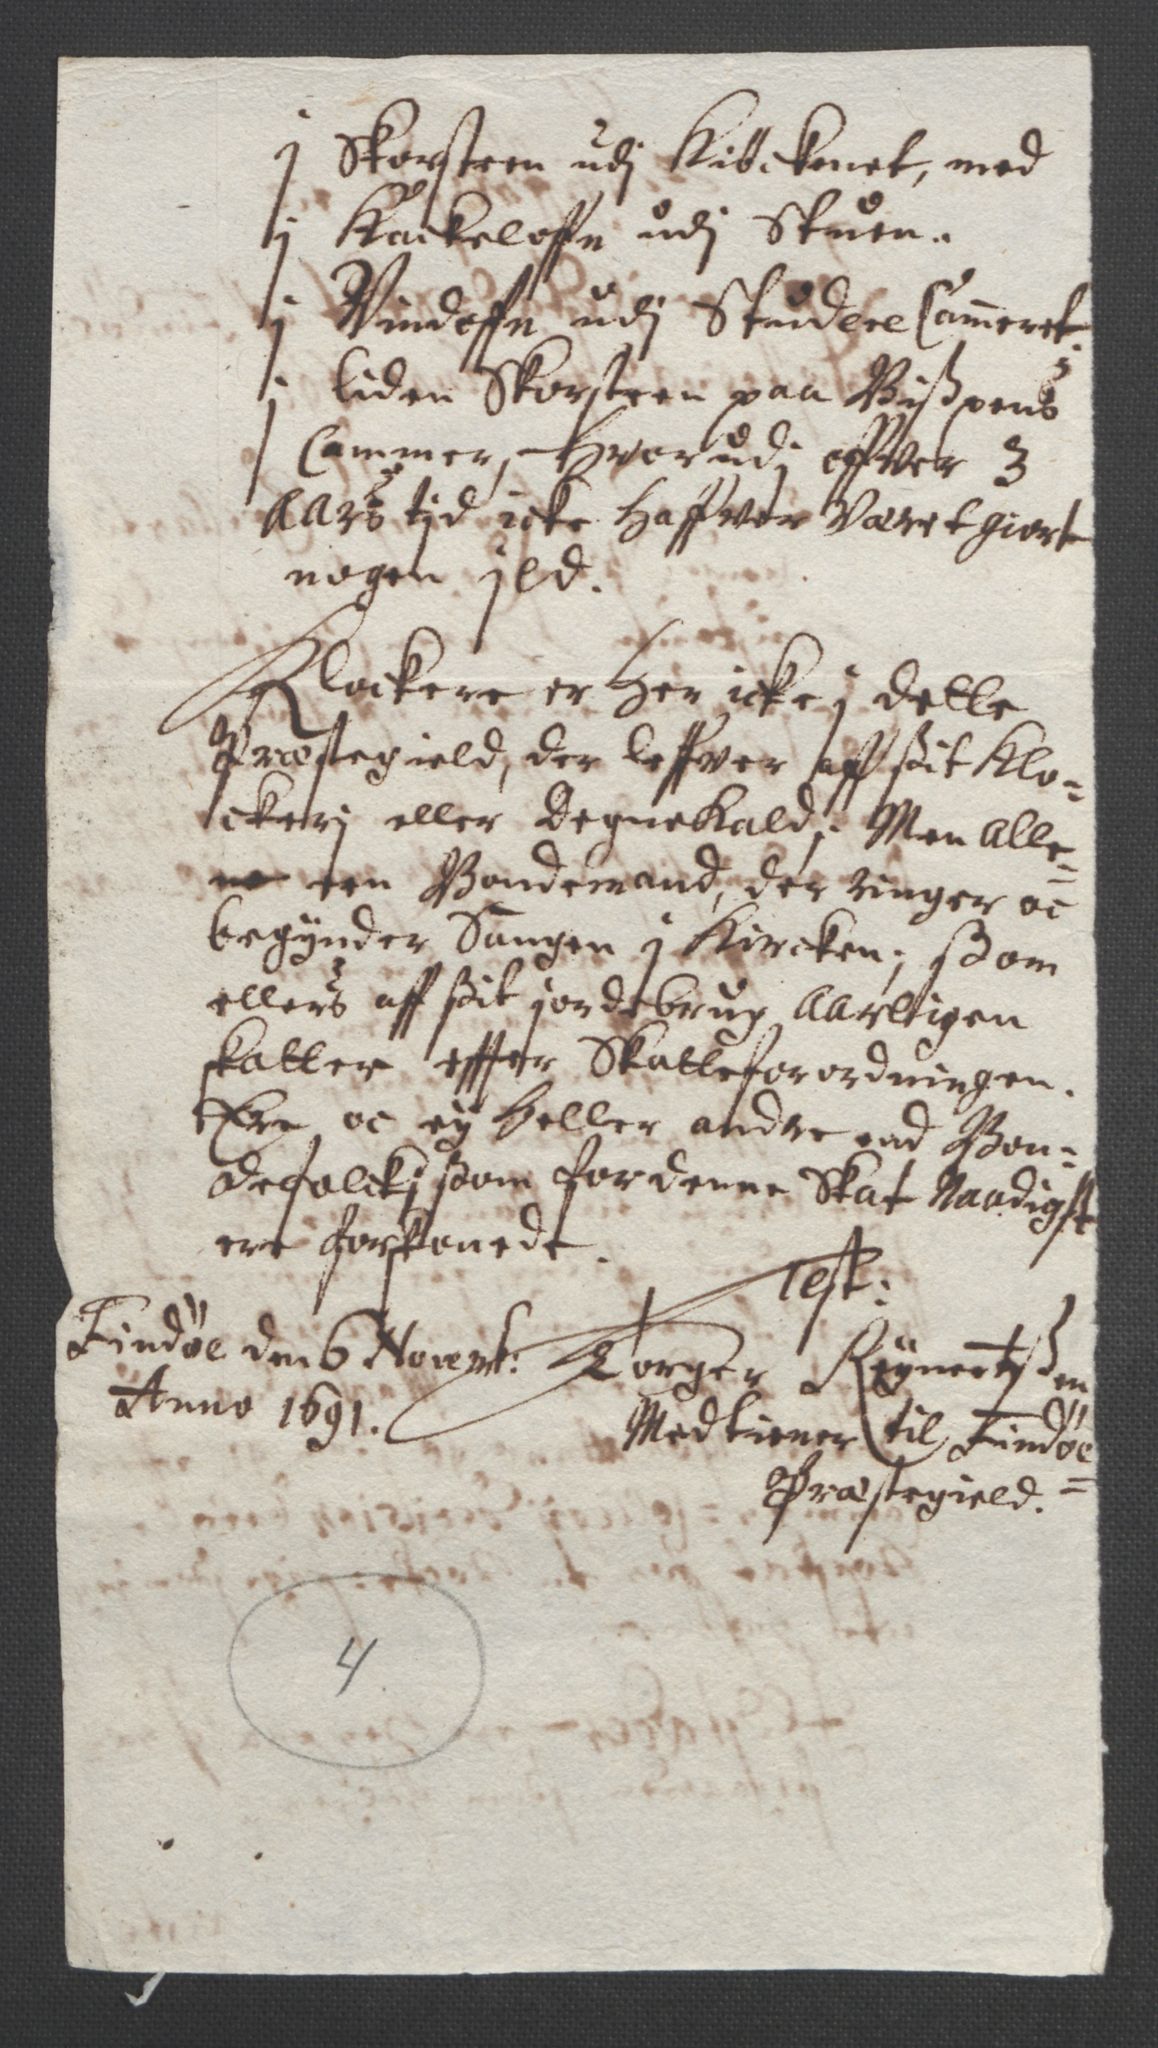 j Skorsteen udj Kiöckenet, med
j Kackeloffn udj Stuen.
j Vindoffn udj Studere Cammeret.
j liden Skorsteen paa Bißpens
Cammer, Hvorudj offver 3
AArs tid icke Haffver Været giort
nogen jld.
Klockere er Her icke j dette
Præstegield, der leffver aff sit Klo=
ckerj eller DegneKald, Men Alle=
ne een Bondemand, der ringer oc
begynder Sangen j Kircken, ßom
ellers aff sit jordebrug AArligen
skatter effter Skatteforordningen.
oc ey Heller andre end Bon=
defolck, ßom for denne Skat Naadigst
ere forskonede.
Test:
Findöe den 6 Novemb: Torger Reÿnertßen
Anno 1691.
Medtiener til Findöe
Præstegield.
4